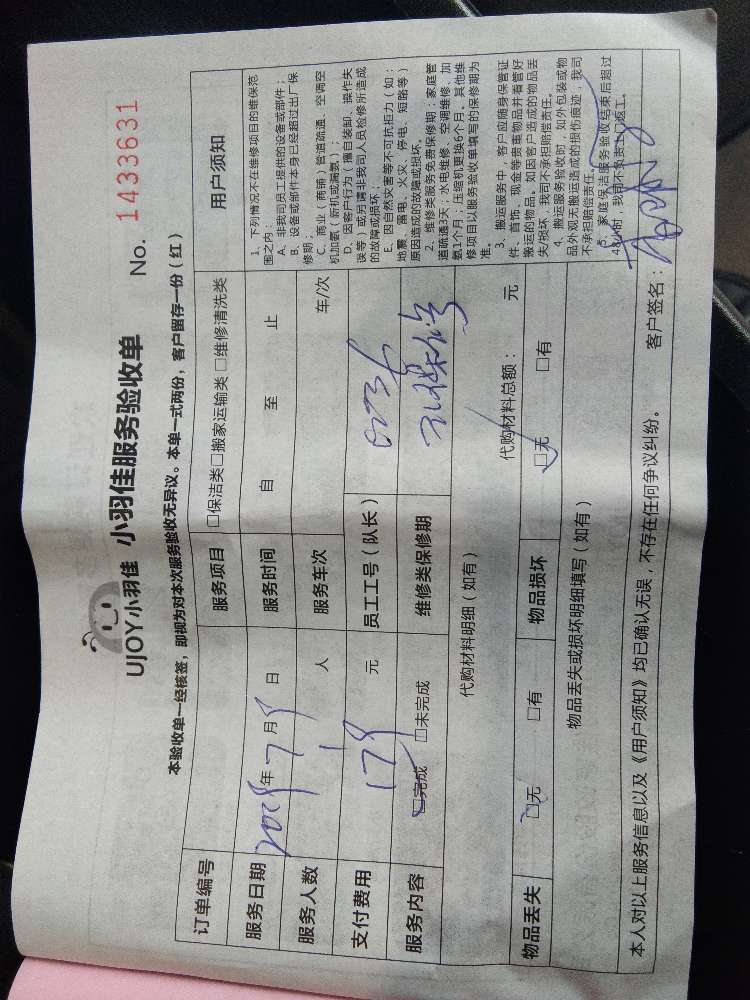 UJOY小羽佳 小羽佳服务验收单
No. 1433631
本验收单一经核签，即视为对本次服务验收无异议。本单一式两份，客户留存一份（红）
订单编号
服务项目 □保洁类□搬家运输类 □维修清洗类
服务日期 年7月 日
服务时间 自 至 止
服务人数 1 人
服务车次 车/次
支付费用 元
员工工号（队长）
服务内容 □完成 □未完成
维修类保修期 不保修
代购材料明细（如有） 代购材料总额： 元
物品丢失 □无 □有
物品损坏 □无 □有
物品丢失或损坏明细填写（如有）
本人对以上服务信息以及《用户须知》均已确认无误，不存在任何争议纠纷。 客户签名：
用户须知
1、下列情况不在维修项目的维保范
围之内：
A、非我司员工提供的设备或部件；
B、设备或部件本身已经超过出厂保
修期；
C、商业（商铺）管道疏通、空调空
机加氨（新机或漏氨）；
D、因客户行为（擅自装卸、操作失
误等）或另请非我司人员检修所造成
的故障或损坏；
E、因自然灾害等不可抗拒力（如：
地震、雷电、火灾、停电、短路等）
原因造成的故障或损坏。
2、维修类服务免费保修期：家庭管
道疏通3天；水电维修、空调维修、加
氨1个月；压缩机更换6个月。其他维
修项目以服务验收单填写的保修期为
准。
3、搬运服务中，客户应随身保管证
件、首饰、现金等贵重物品并看管好
搬运的物品。如因客户造成的物品丢
失/损坏，我司不承担赔偿责任。
4、搬运服务验收时，如外包装或物
品外观无搬运造成的损伤痕迹，我司
不承担赔偿责任。
5、家庭保洁服务验收结束后超过
48小时，我司不负责上门返工。